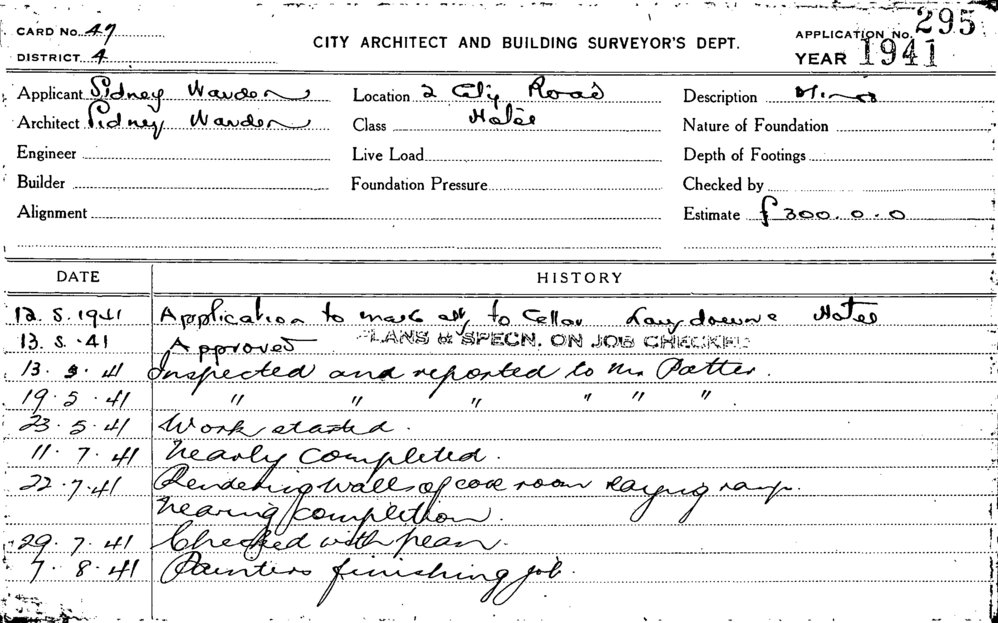 CARD NO. 47
DISTRICT. 4
CITY ARCHITECT AND BUILDING SURVEYOR'S DEPT.
APPLICATION NO. 295
YEAR 1941
Applicant Sidney Warden Location 2 City Road Description Minor
Architect Sidney Warden Class Hotel Nature of Foundation
Engineer Live Load Depth of Footings
Builder Foundation Pressure Checked by
Alignment Estimate £300.0.0
DATE HISTORY
12.5.1941 Application to make to Cellar Lansdowne Hotel
13.5.41 Approved PLANS & SPECN. ON JOB CHECKED
13.5.41 Inspected and reported to Mr Potter.
19.5.41 " " " " " "
23.5.41 Work started.
11.7.41 Nearly Completed.
22.7.41 Rendering walls of cool room laying ramp.
Nearing completion.
29.7.41 Checked with plan.
7.8.41 Painters finishing job.